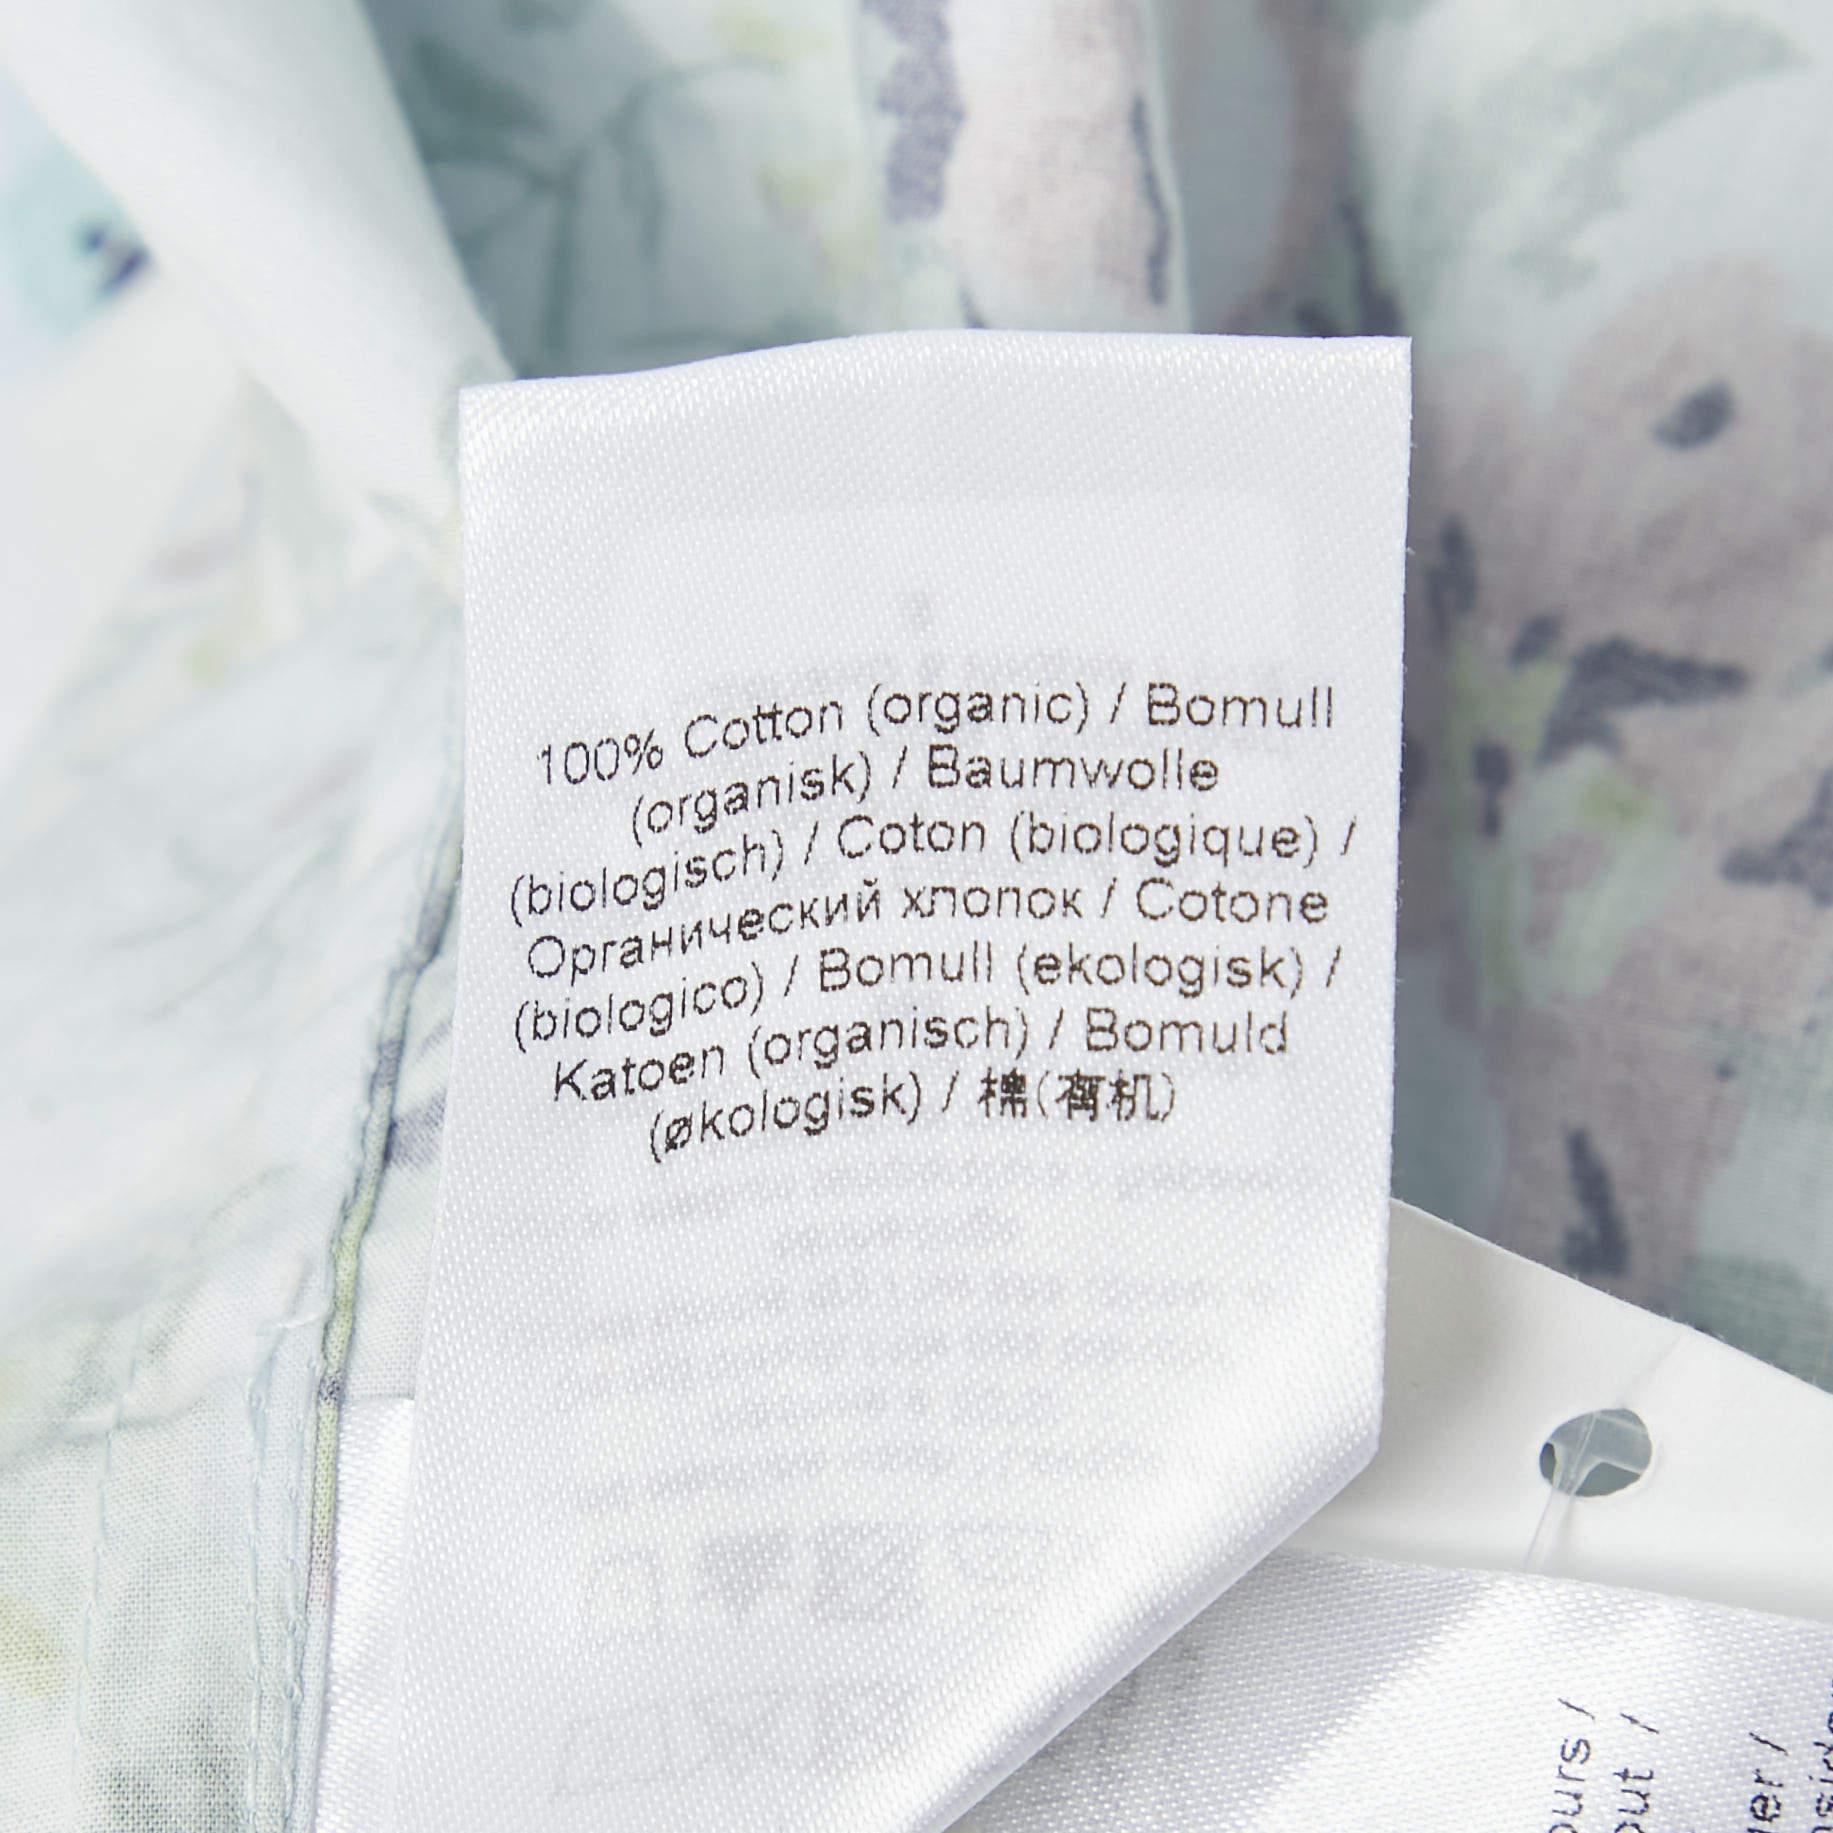 100% Cotton (organic) / Bomull
(organisk) / Baumwolle
(biologisch) / Coton (biologique) /
Органический хлопок / Cotone
(biologico) / Bomull (ekologisk) /
Katoen (organisch) / Bomuld
(økologisk) / 棉(有机)
ours /
out /